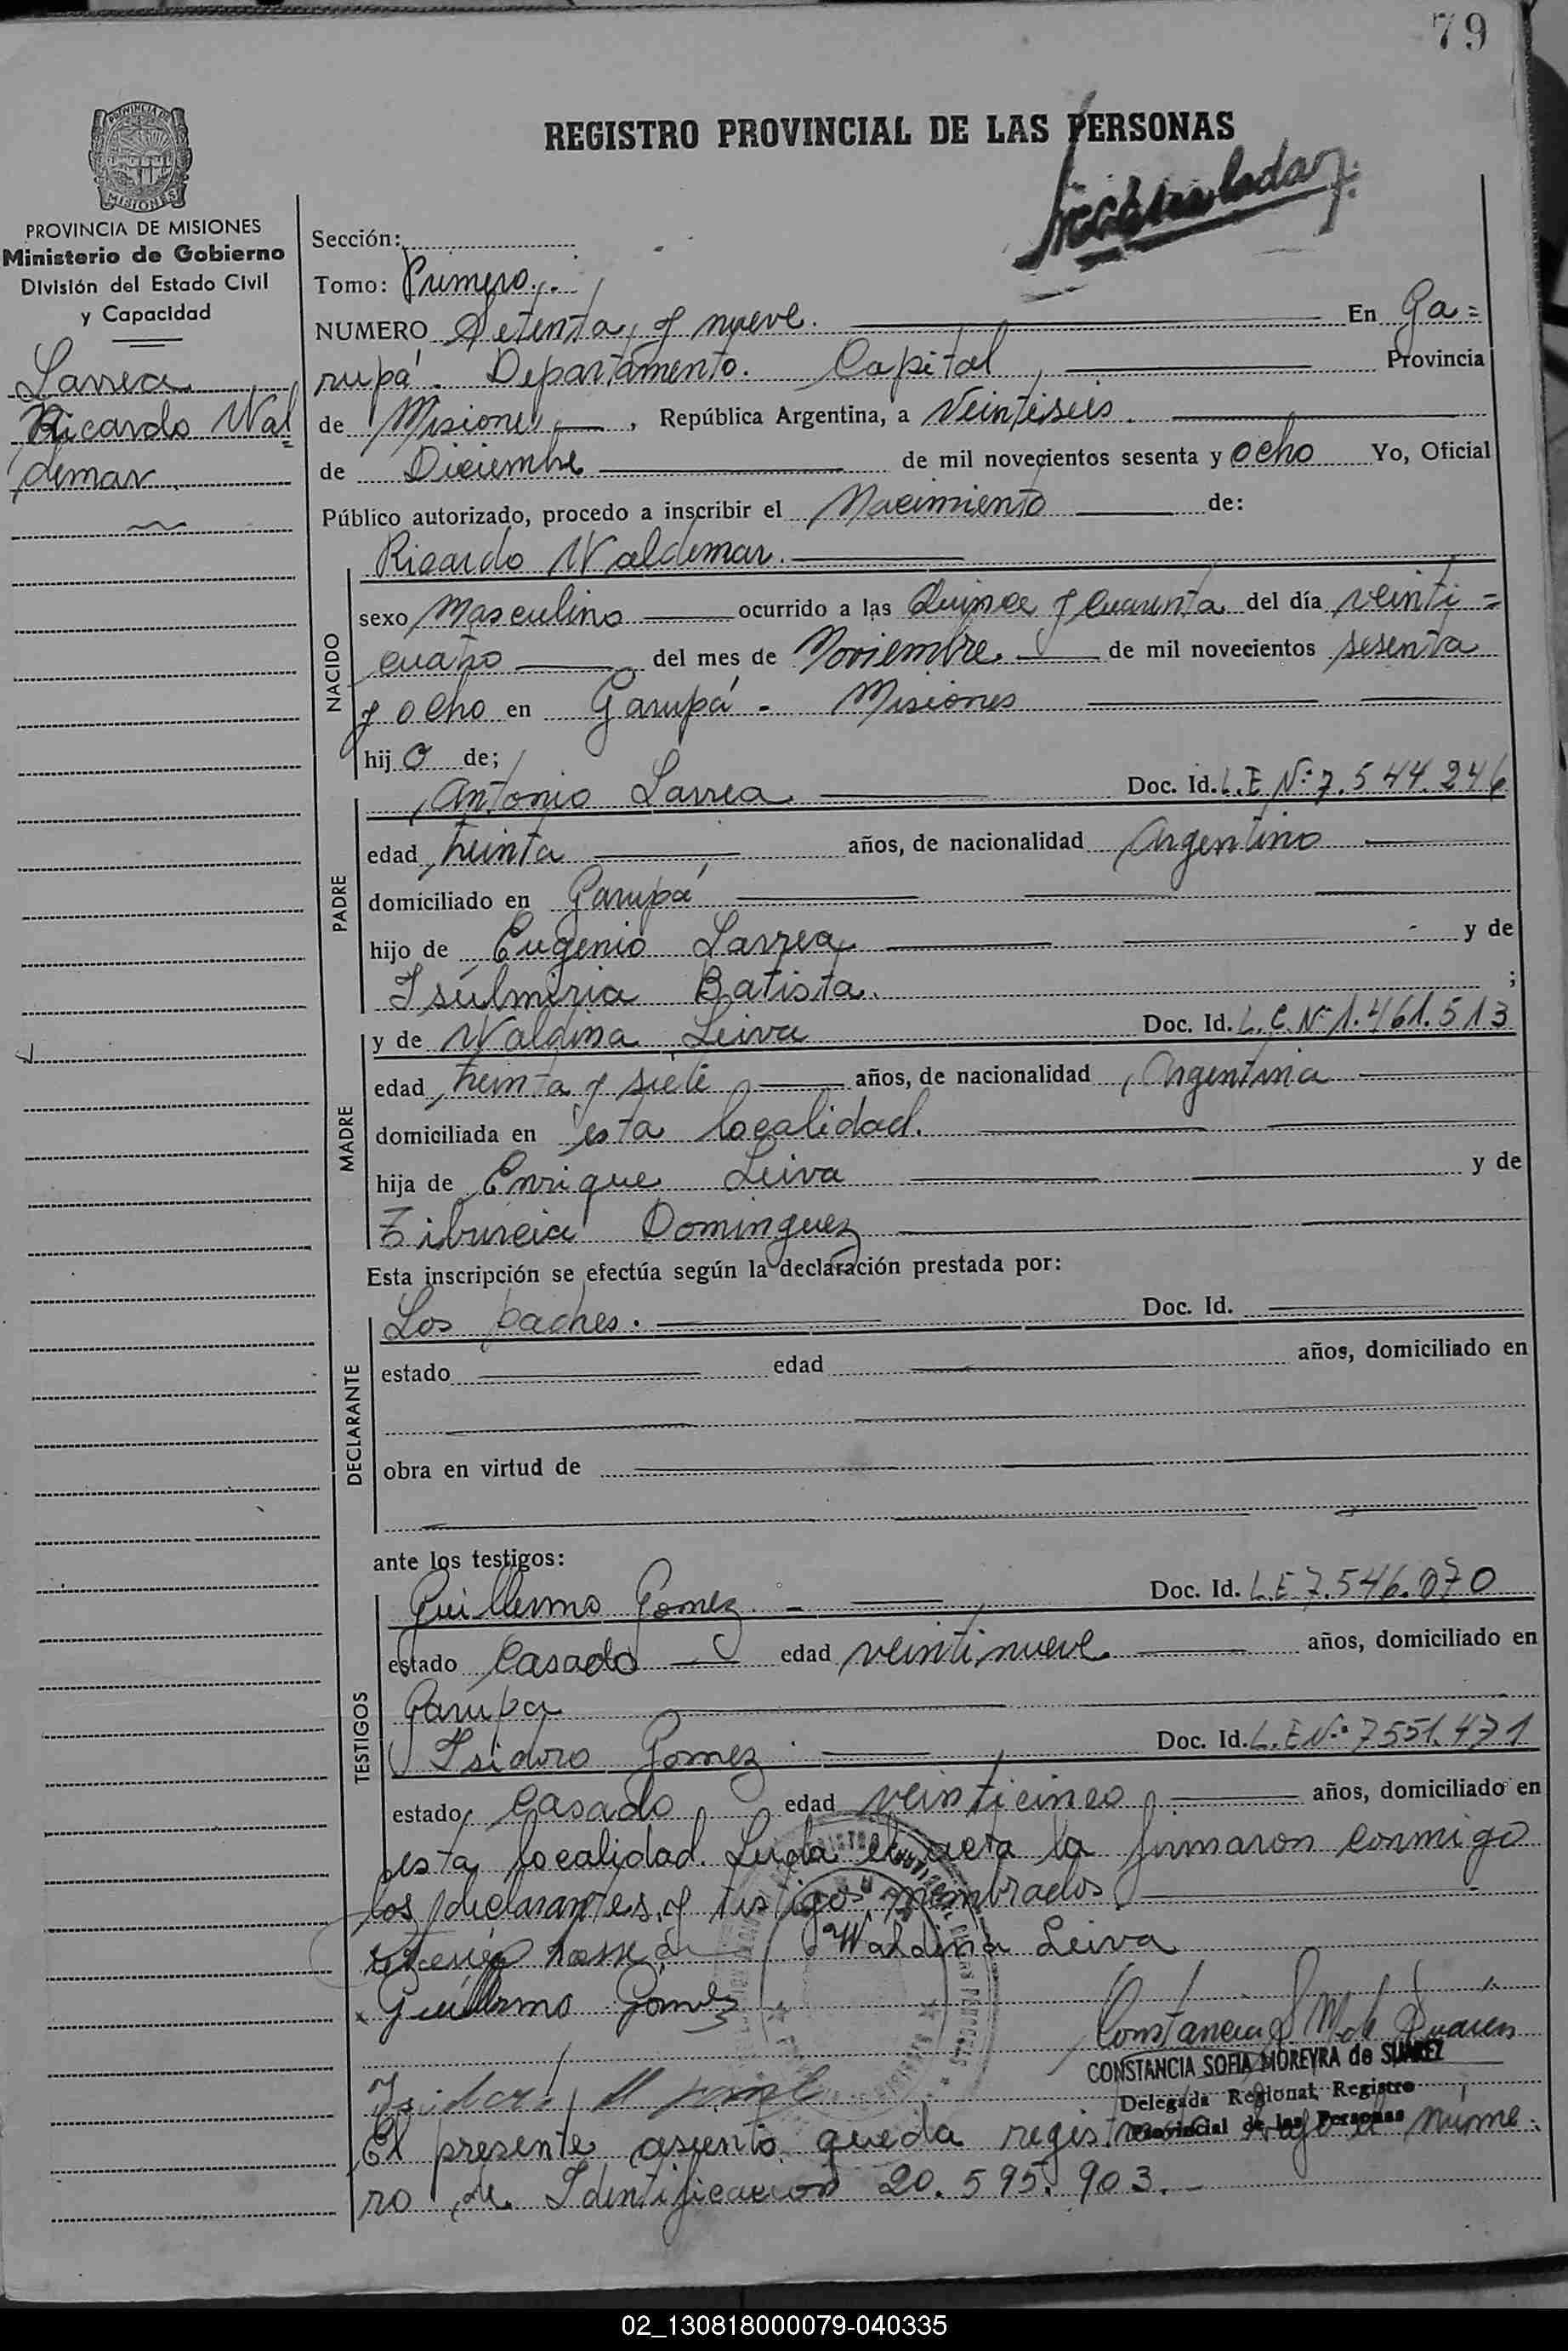 79
REGISTRO PROVINCIAL DE LAS PERSONAS
PROVINCIA DE MISIONES
Ministerio de Gobierno
División del Estado Civil
y Capacidad
Larrea
Ricardo Wal
demar
Sección:
Tomo: Primero.
NUMERO Setenta y nueve. En Ga=
rupá. Departamento. Capital Provincia
de Misiones, República Argentina, a Veintiseis
de Diciembre de mil novecientos sesenta y ocho Yo, Oficial
Público autorizado, procedo a inscribir el Nacimiento de:
NACIDO
Ricardo Waldemar.
sexo Masculino ocurrido a las Quince y Cuarenta del día veinti=
cuatro del mes de Noviembre de mil novecientos sesenta
y ocho en Garupá - Misiones
hijo de;
PADRE
Antonio Larrea Doc. Id. L.E Nº 7.544.246
edad treinta años, de nacionalidad Argentino
domiciliado en Garupá
hijo de Eugenio Larrea y de
Batista. ;
MADRE
y de Waldina Leiva Doc. Id. L.C. Nº 1.461.513
edad treinta y siete años, de nacionalidad Argentina
domiciliada en esta localidad.
hija de Enrique Leiva y de
Tiburcia Dominguez
Esta inscripción se efectúa según la declaración prestada por:
DECLARANTE
Los padres. Doc. Id.
estado edad años, domiciliado en
obra en virtud de
ante los testigos:
TESTIGOS
Guillermo Gomez. Doc. Id. L.E 7.546.070
estado Casado edad veintinueve años, domiciliado en
Garupa
Isidoro Gomez Doc. Id. L.E Nº 7551.471
estado Casado edad veinticinco años, domiciliado en
esta localidad. Leida el acta la firmaron conmigo
los declarantes y testigos nombrados.
Waldina Leiva
Guillermo Gomez
Constancia S M de Suarez
CONSTANCIA SOFIA MOREYRA de SUAREZ
Delegada Regional Registro
Provincial de las Personas
El presente asiento queda registrado bajo el núme
ro de Identificacion 20.595.903.-
02_130818000079-040335